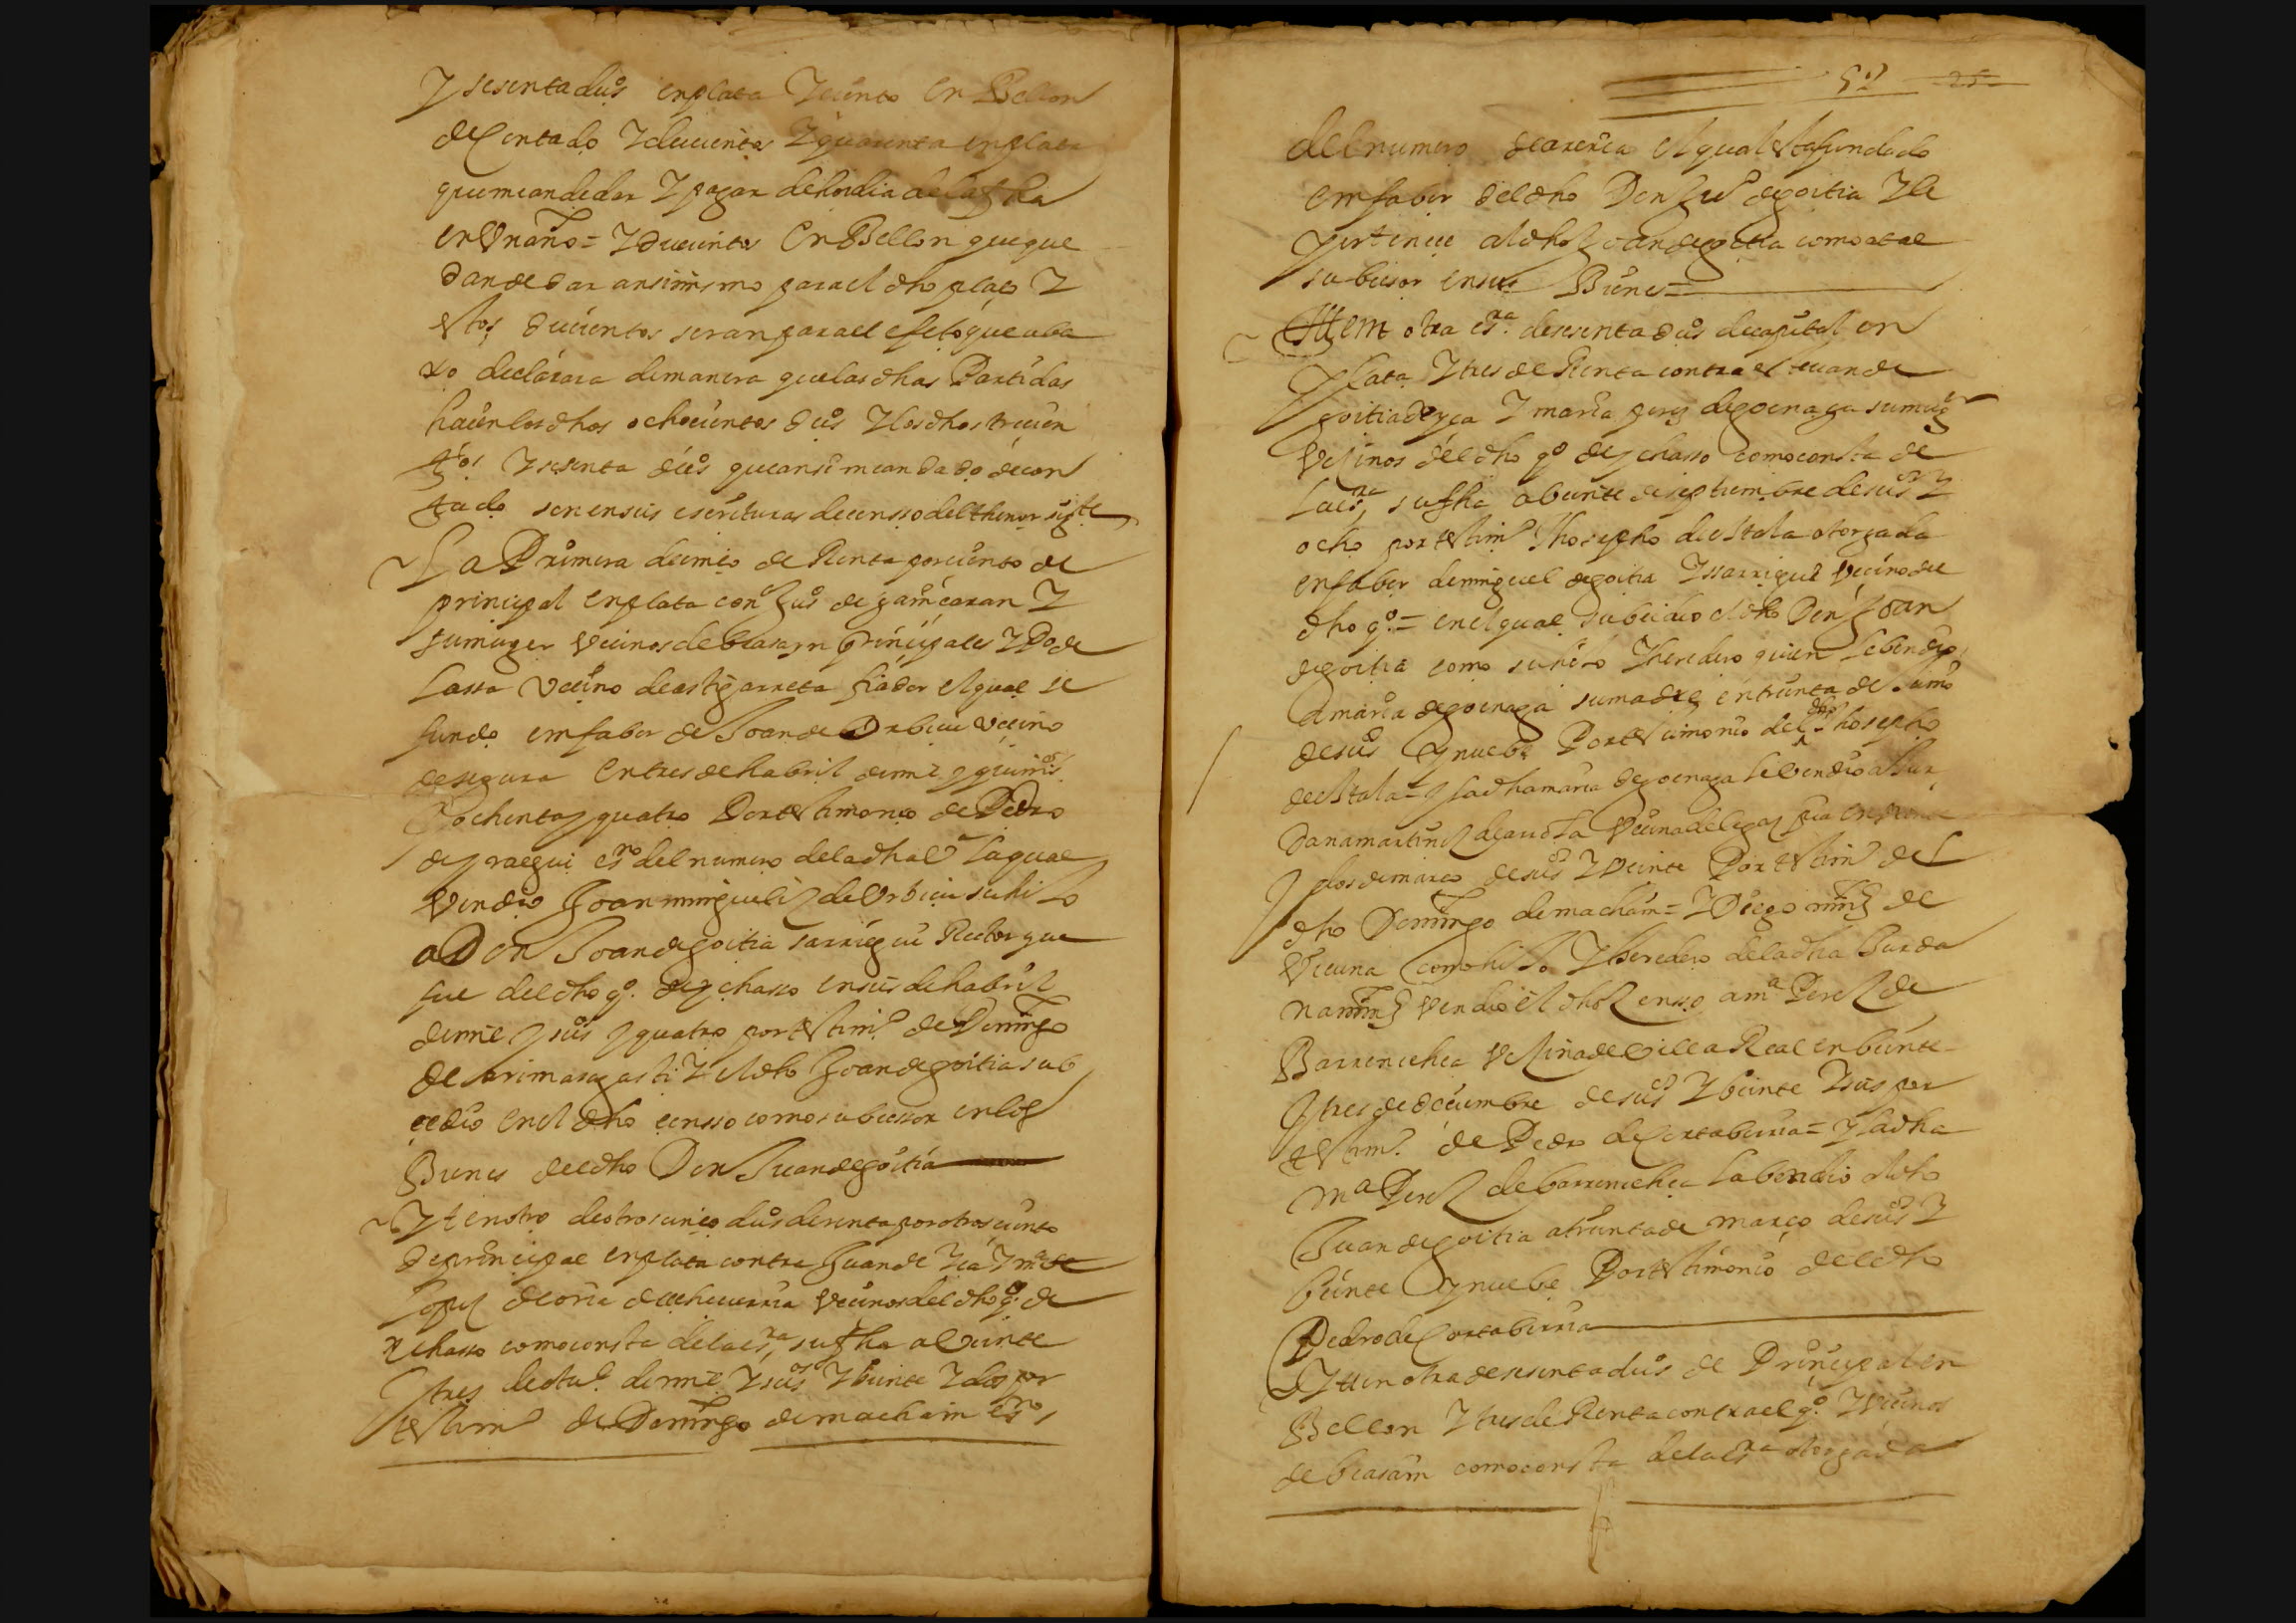 Y sesenta du.os en plata Y ciento en Bellon
de Contado Y ducientos Y quarenta en plata
que me an de dar Y pagar de hoi dia de la fha
en Un año = Y ducientos En Bellon que que
dan de dar ansimismo para el dho plaço Y
estos ducientos seran para el efeto que aba
xo declarara de manera que las dhas Partidas
hacen los dhos ochocientos du.os Y los dhos trecien
tos Y sesenta du.os que ansi me an dado de con
tado son en seis escrituras de censso del thenor sig.te
La Primera de cinco de Renta por ciento de
principal en plata con
su muger Vecinos de beasayn principales Y P.o de
Lassa Vecino de astigarreta fiador el qual se
fundo em fabor de Joan de Vrbicu Vecino
de segura En tres de habril de mil y quin.os
Y ochenta y quatro Por testimonio de Pedro
de yraegui es.no del numero de la dha V.a la qual
Vendio Joan migueliz de Vrbicu su hijo
a Don Joan de goitia sarriegui Rector que
fue del dho g.o de ychasso en seis de habril
de mil y seis.os y quatro por testim.o de Domingo
de arimasagasti Y el dho Joan de goitia sub
cedio en el dho censso como subcessor en los
Bienes del dho Don Juan de goitia
Yten otro de otros cinco du.os de renta por otros ciento
de principal en plata contra Juan de
Lopez de oria de echeverria Vecinos del dho g.o de
ychasso como consta de la es.ra su fha a Veinte
Y tres de otu.e de mil Y seis.os Y Veinte Y dos por
testim.o de Domingo de machain es.no
52 25
del numero de areria el qual esta fundado
em fabor del dho Don Ju.o de goitia Y le
pertenece al dho Joan de goitia como a tal
subcesor en sus Bienes =
Ittem otra es.ra de sesenta du.os de capital en
plata Y tres de Renta contra esteuan de
goitia de yça Y maria perez de goenaga su mug.r
Vecinos del dho g.o de ychasso como consta de
la es.ra su fha a beinte de septiembre de seis.os Y
ocho por testim.o Jhosepho de estala otorgada
en fabor de miguel de goitia Y sarriegui Vecino del
dho g.o = en el qual subcedio el dho Don Joan
de goitia como su hijo Y heredero quien le bendio
a maria de goenaga su madre en treinta de Junio
de seis.os y nuebe Por testimonio del dho Jhosepho
de estala = Y la dha maria de goenaga le Vendio a Jur
dana martinez de Vecina de legazpia en
Y dos de março de seis.os Y Veinte Por testim.o del
dho Domingo de machain = Y Diego mrnz de
Vicuna como hijo Y heredero de la dha Jurda
na mrnz Vendio el dho censso a m.a Perez de
Barrenechea Vecina de Villa Real en beinte
Y tres de deciembre de seis.os Y beinte Y seis por
testim.o de Pedro de Cortaberria = Y la dha
m.a Perez de barrenechea la bendio al dho
Juan de goitia a treinta de março de seis.os Y
beinte y nuebe Por testimonio del dho
Pedro de Cortaberria
Yten otra de sesenta du.os de Principal en
Bellon Y tres de Renta contra el g.o Y Vecinos
de beasain como consta de la es.ra otorgada